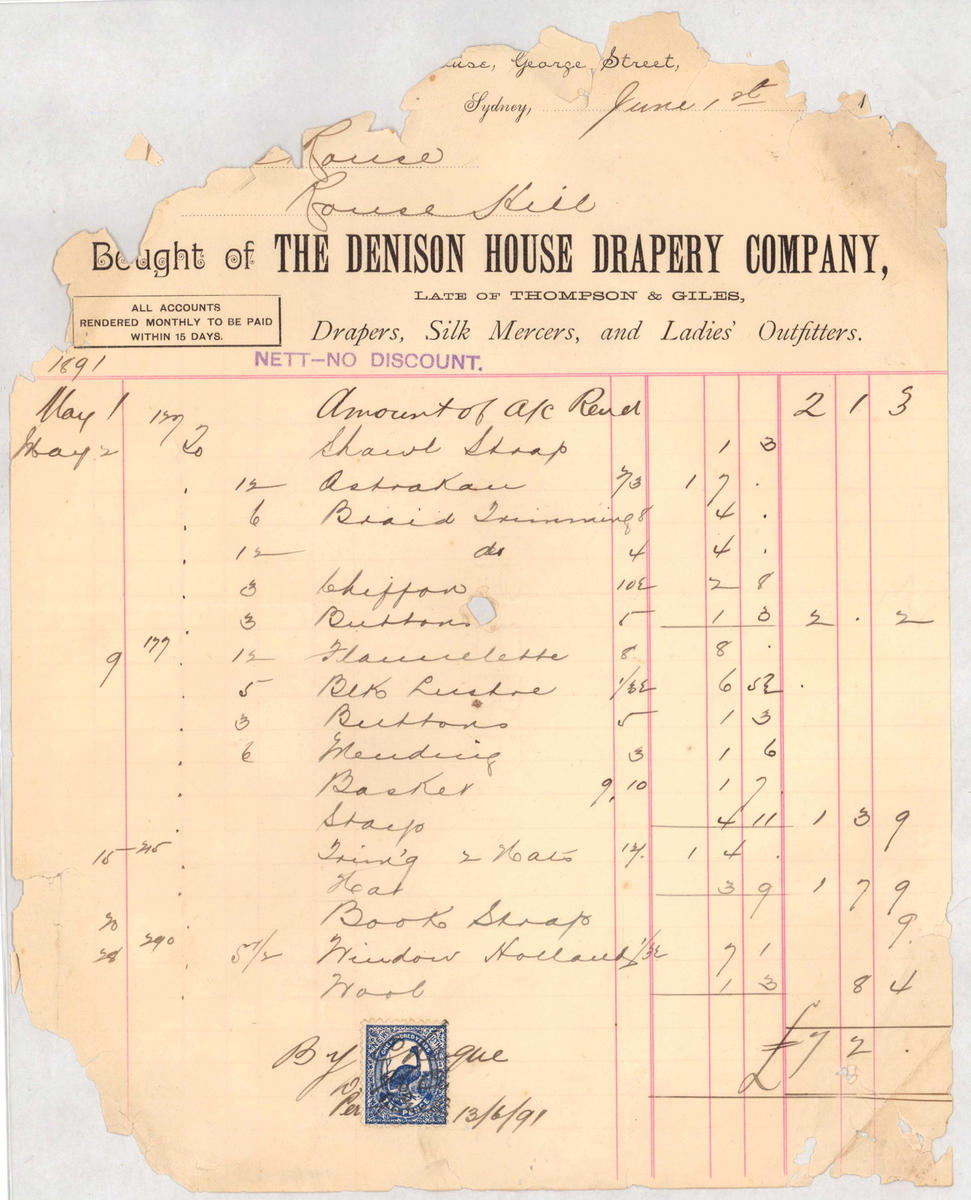 use, George Street,
Sydney, June 1st 1
Rouse
Rouse Hill
Bought of THE DENISON HOUSE DRAPERY COMPANY,
LATE OF THOMPSON & GILES,
ALL ACCOUNTS
RENDERED MONTHLY TO BE PAID
WITHIN 15 DAYS.
Drapers, Silk Mercers, and Ladies' Outfitters.
NETT—NO DISCOUNT.
1891
May 1 Amount of A/c Rend 2 1 3
May 2 177 To Shawl Strap 1 3
12 Astrakan 2/3 1 7 .
6 Braid Trimming 8 4 .
12 do 4 4 .
3 Chiffon 10½ 2 8
3 Buttons 5 1 3 2 . 2
9 177 12 Flannelette 8 8 .
5 Blk Lustre 1/3½ 6 5½ .
3 Buttons 5 1 3
6 Mending 3 1 6
Basket 9, 10 1 7
Stays 4 11 1 3 9
15 Trim'g 2 Hats 12/. 1 4 .
Hat 3 9 1 7 9
20 Book Strap 9
28 290 5 1/2 Window Holland 1/3½ 7 1
Wool 1 3 8 4
£7 2 .
By Cheque
ONE HUNDRED YEARS
TWO PENCE
Per 13/6/91